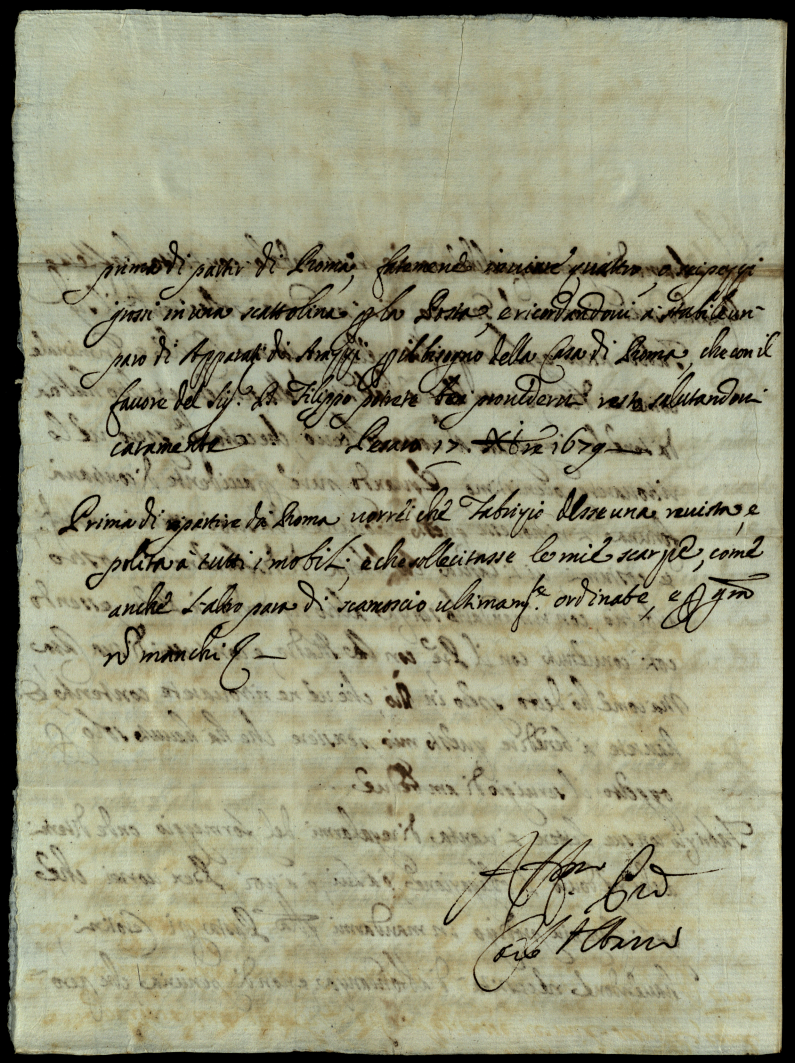 prima di partir di Roma, fatemene inviare quattro, o sei pezzi
in una scattolina p la Posta, e ricordandovi a stabilir un
paro di Apparati di Arazzi p il bisogno della Casa di Roma, che con il
favore del Sig. D. Filippo potrete ben provedervi resto salutandovi
caramente Pesaro 17 Xbre 1679
Prima di ripartire da Roma vorrei che Fabrizio desse una revista, e
polita a tutti i mobili, e che sollecitasse le mie scarpe, come
anche l'altro paro di scamoscio ultimamte. ordinate, e
manchi
Carlo Albani